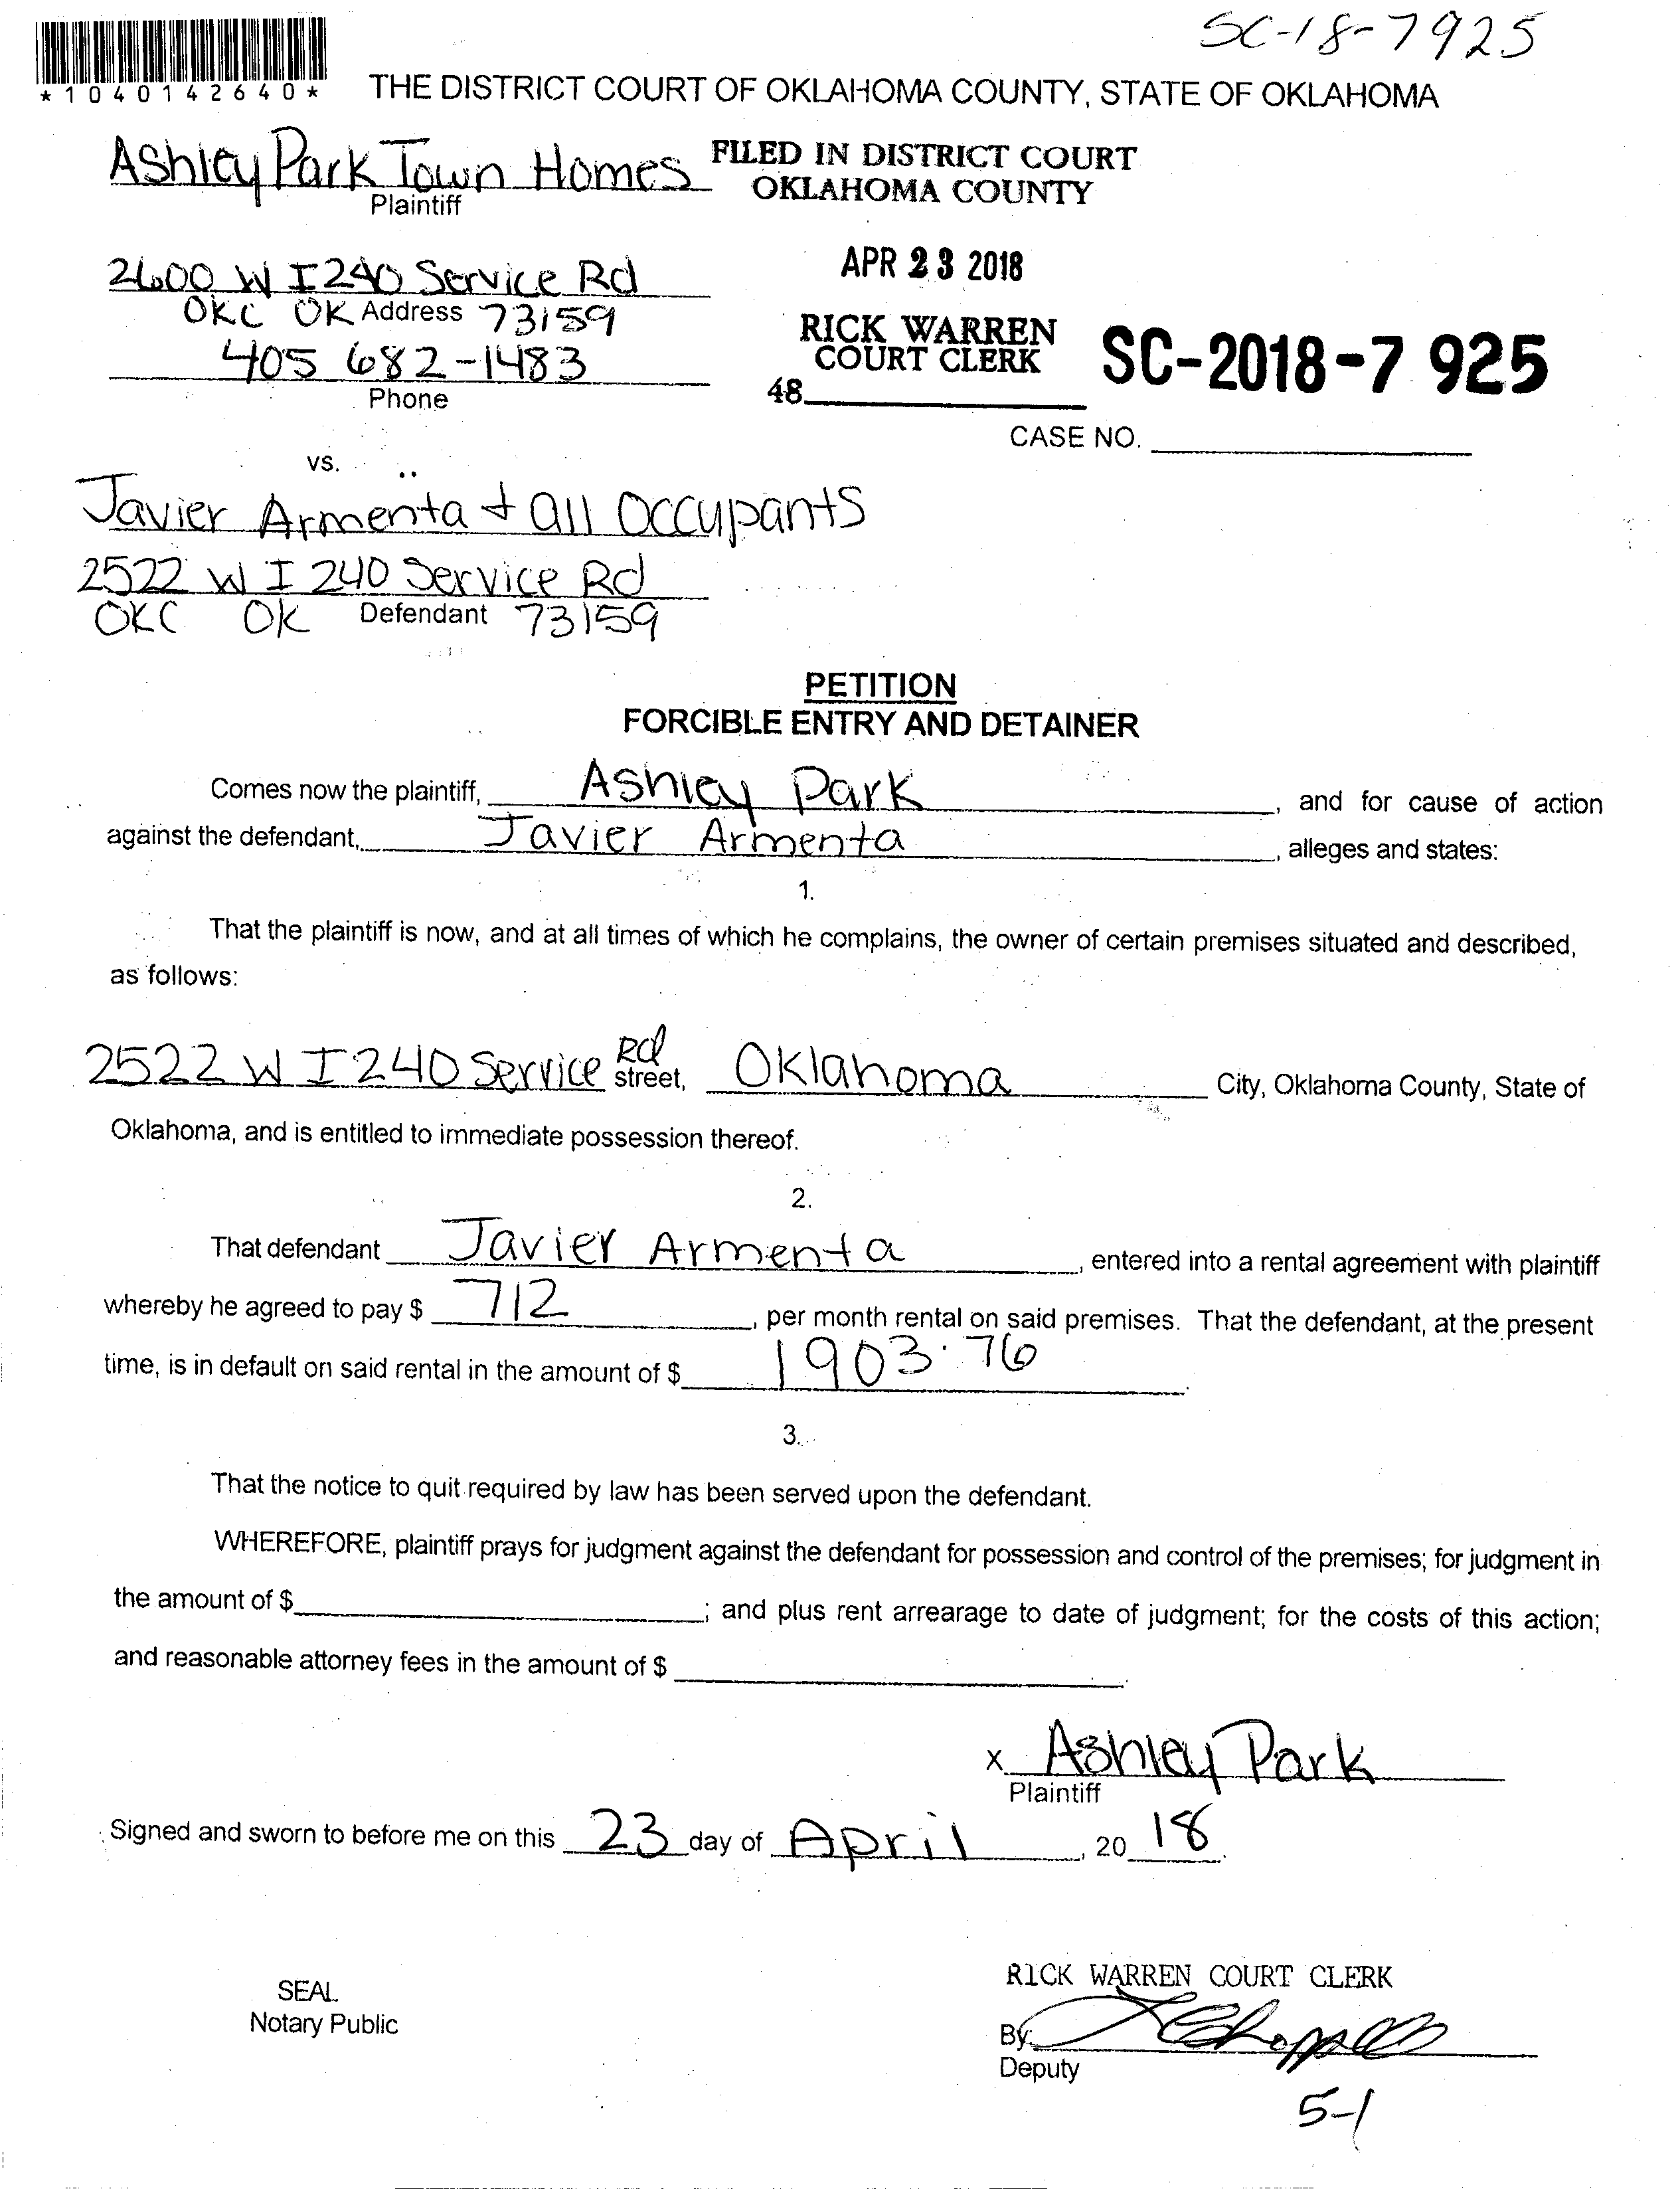 SC-18-7925
*1040142640*
THE DISTRICT COURT OF OKLAHOMA COUNTY, STATE OF OKLAHOMA
Ashley Park Town Homes
Plaintiff
FILED IN DISTRICT COURT
OKLAHOMA COUNTY
2600 W I240 Service Rd
OKC OK Address 73159
405 682-1483
Phone
APR 23 2018
RICK WARREN
COURT CLERK
48
SC-2018-7 925
CASE NO.
vs.
Javier Armenta + all Occupants
2522 W I 240 Service Rd
OKC OK Defendant 73159
PETITION
FORCIBLE ENTRY AND DETAINER
Comes now the plaintiff, Ashley Park, and for cause of action
against the defendant, Javier Armenta, alleges and states:
1.
That the plaintiff is now, and at all times of which he complains, the owner of certain premises situated and described,
as follows:
2522 W I 240 Service Rd street, Oklahoma City, Oklahoma County, State of
Oklahoma, and is entitled to immediate possession thereof.
2.
That defendant Javier Armenta, entered into a rental agreement with plaintiff
whereby he agreed to pay $ 712, per month rental on said premises. That the defendant, at the present
time, is in default on said rental in the amount of $ 1903.76.
3.
That the notice to quit required by law has been served upon the defendant.
WHEREFORE, plaintiff prays for judgment against the defendant for possession and control of the premises; for judgment in
the amount of $; and plus rent arrearage to date of judgment; for the costs of this action;
and reasonable attorney fees in the amount of $.
x Ashley Park
Plaintiff
Signed and sworn to before me on this 23 day of April, 20 18.
SEAL
Notary Public
RICK WARREN COURT CLERK
By:
Deputy
5-1